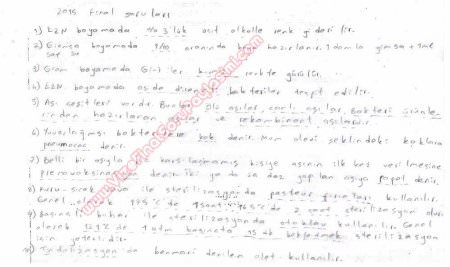 2015 Final soruları
1) EZN boyamada %3'lük asit alkolle renk giderilir.
2) Giemsa boyamada 1/10 oranında boya hazırlanır. 1 damla giemsa + 9 ml
saf su
3) Gram boyamada G(-)'ler renkte görülür.
4) EZN boyamada aside dirençli bakteriler tespit edilir.
5) Aşı çeşitleri vardır. Bunlar ölü aşılar, canlı aşılar, Bakteri ürünle
rinden hazırlanan aşılar ve rekombinant aşılardır.
6) Yuvarlağımsı bakterilere kok denir. Mum alevi şeklindeki koklara
pneumococ denir.
7) Belli bir aşıyla karşılaşmamış kişiye aşının ilk kez verilmesine
denir. iki ya da daz yapılan aşıya rapel denir.
8) Kuru sıcak ile sterilizasyonda pasteur fırınları kullanılır.
Genel olarak 175°C de 1 saat 2 saat sterilizasyon
9) Basınçlı buhar ile sterilizasyonda otoklav kullanılır. Genel
olarak 121°C de 1 atm basınçta 15 dk bekletmek sterilizasyon
için yeterlidir.
10) Tindalizasyon da benmari denilen alet kullanılır.